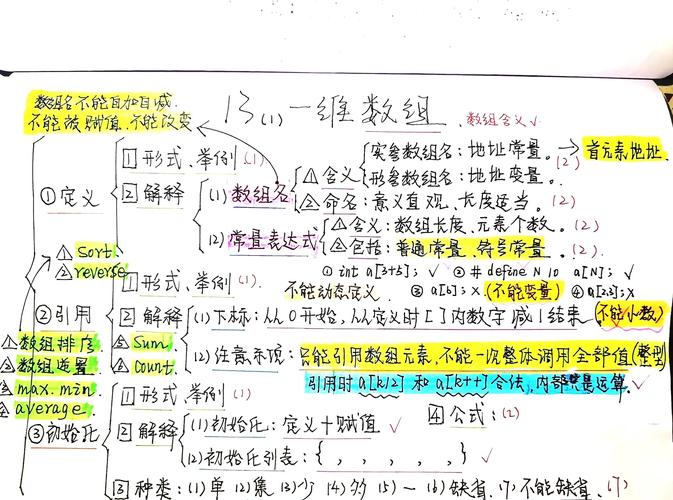 数组名不能自加自减.
不能被赋值.不能改变
13(1)一维数组
数组含义√
①定义
1 形式、举例(1)
2 解释
(1) 数组名
△含义
实参数组名:地址常量。(2)
→首元素地址.
形参数组名:地址变量。
②命名:意义直观、长度适当。(2)
(2) 常量表达式
△含义:数组长度、元素个数。(2)
②包括:普通常量、符号常量。(2)
① int a[3+5]; √ ② #define N 10 a[N]; √
不能动态定义 ③ a[b]; × (不能变量) ④ a[2.3]; ×
sort.
reverse
②引用
1 形式、举例(1).
2 解释
(1) 下标:从0开始,从定义时[ ]内数字减1结束.(不能小数)
(2) 注意事项:只能引用数组元素,不能一次整体调用全部值(整型)
引用时a[k/2]和a[k++]合法,内部是运算.√
数组排序
数组逆置
max.min
average
sum
count
③初始化
1 形式、举例(1)
2 解释
(1) 初始化:定义+赋值 √
(2) 初始化列表:{ , , , , , } √
4 公式:(2)
3 种类:(1)单(2)集(3)少(4)多(5)一(6)缺省.(7)不能缺省.(7)